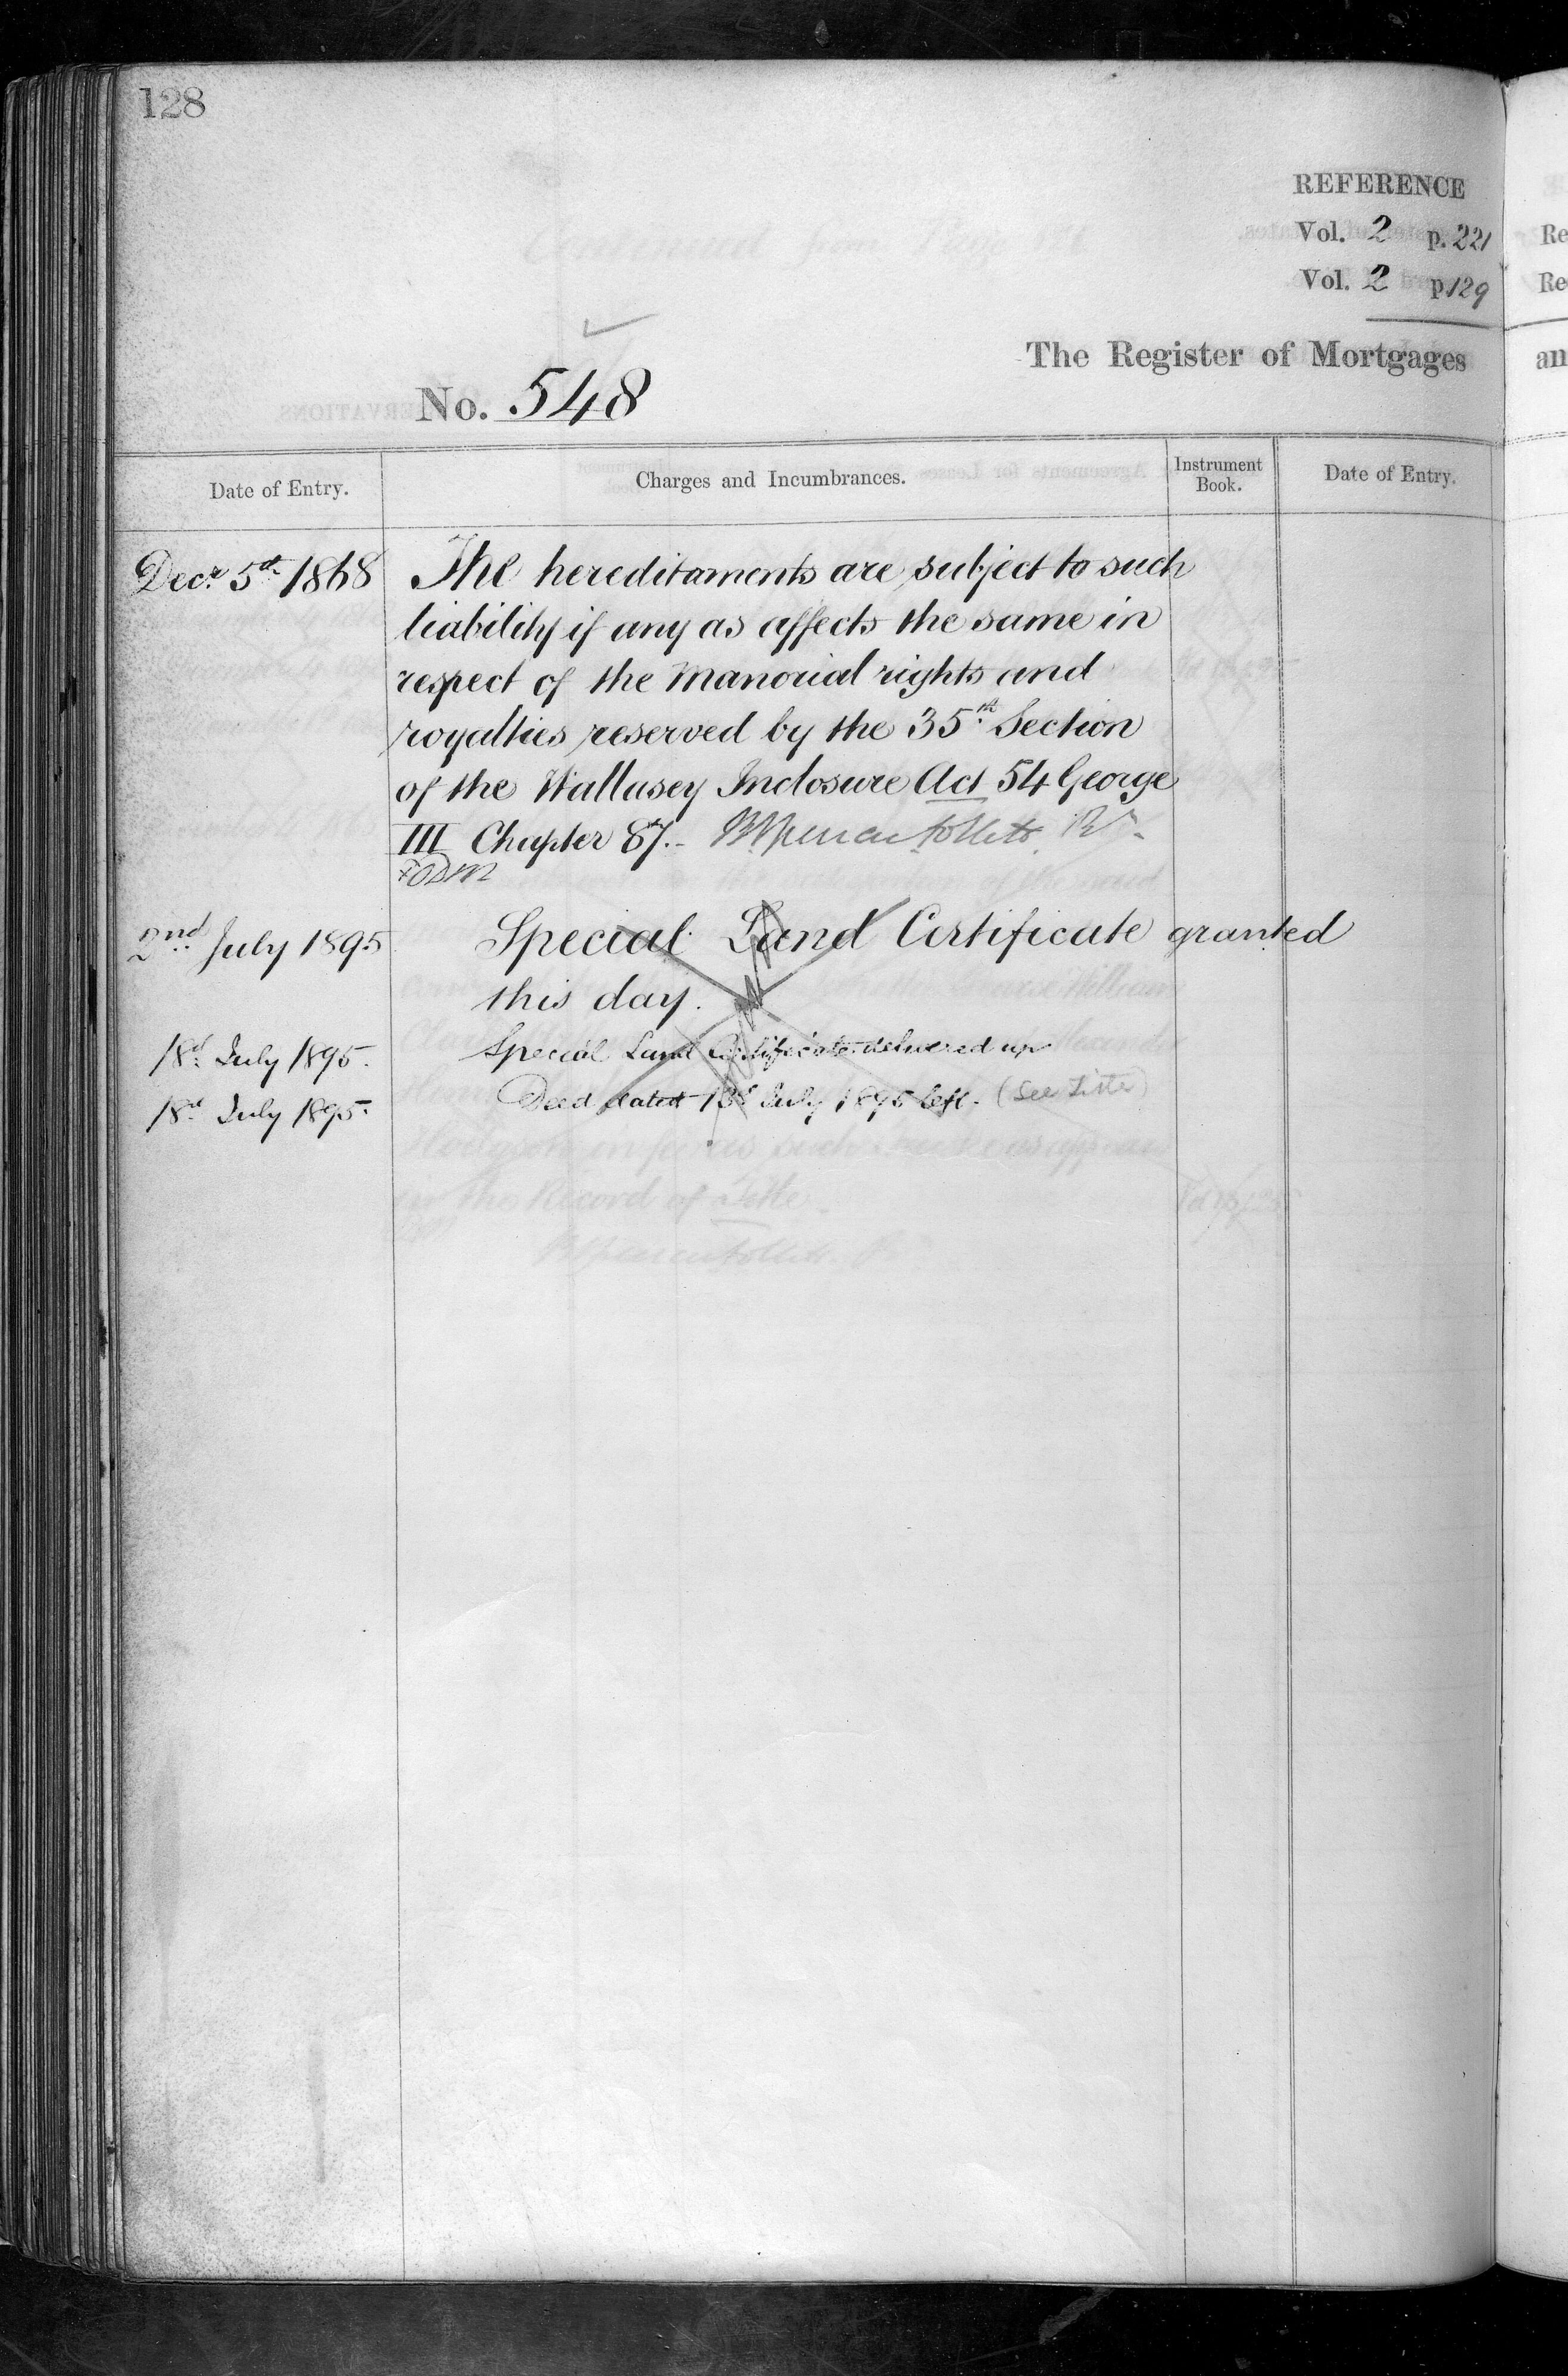 128
REFERENCE
Vol. 2 p. 221
Vol. 2 p 129
The Register of Mortgages
No. 548
Date of Entry. Charges and Incumbrances. Instrument Book. Date of Entry.
Decr. 5th 1868 The hereditaments are subject to such
liability if any as affects the same in
respect of the Manorial rights and
royalties reserved by the 35th Section
of the Wallasey Inclosure Act 54 George
III Chapter 87.-
2nd July 1895 Special Land Certificate granted
this day.
18th July 1895. Special Land Certificate delivered up
18th July 1895. Deed dated 13th July 1895 left. (See Title)
in the Record of Title